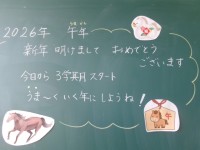 2026年 午年
うまどし
新年 明けまして おめでとう
ございます
今日から 3学期スタート
うま〜くいく年にしようね！
午